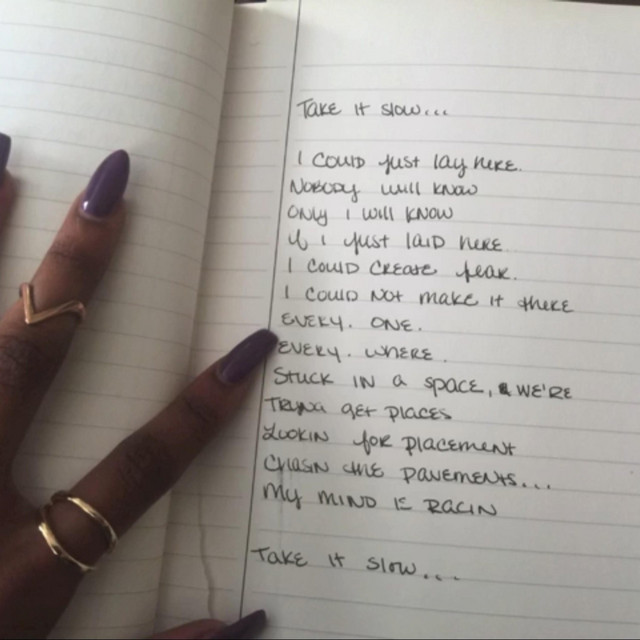 Take it slow...
I could just lay here.
Nobody will know
only I will know
if I just laid here.
I could create fear.
I could not make it there
EVERY. ONE.
EVERY. WHERE.
Stuck in a space, & we're
Tryna get places
Lookin for placement
Chasn the pavements...
My mind is racin
Take it slow...